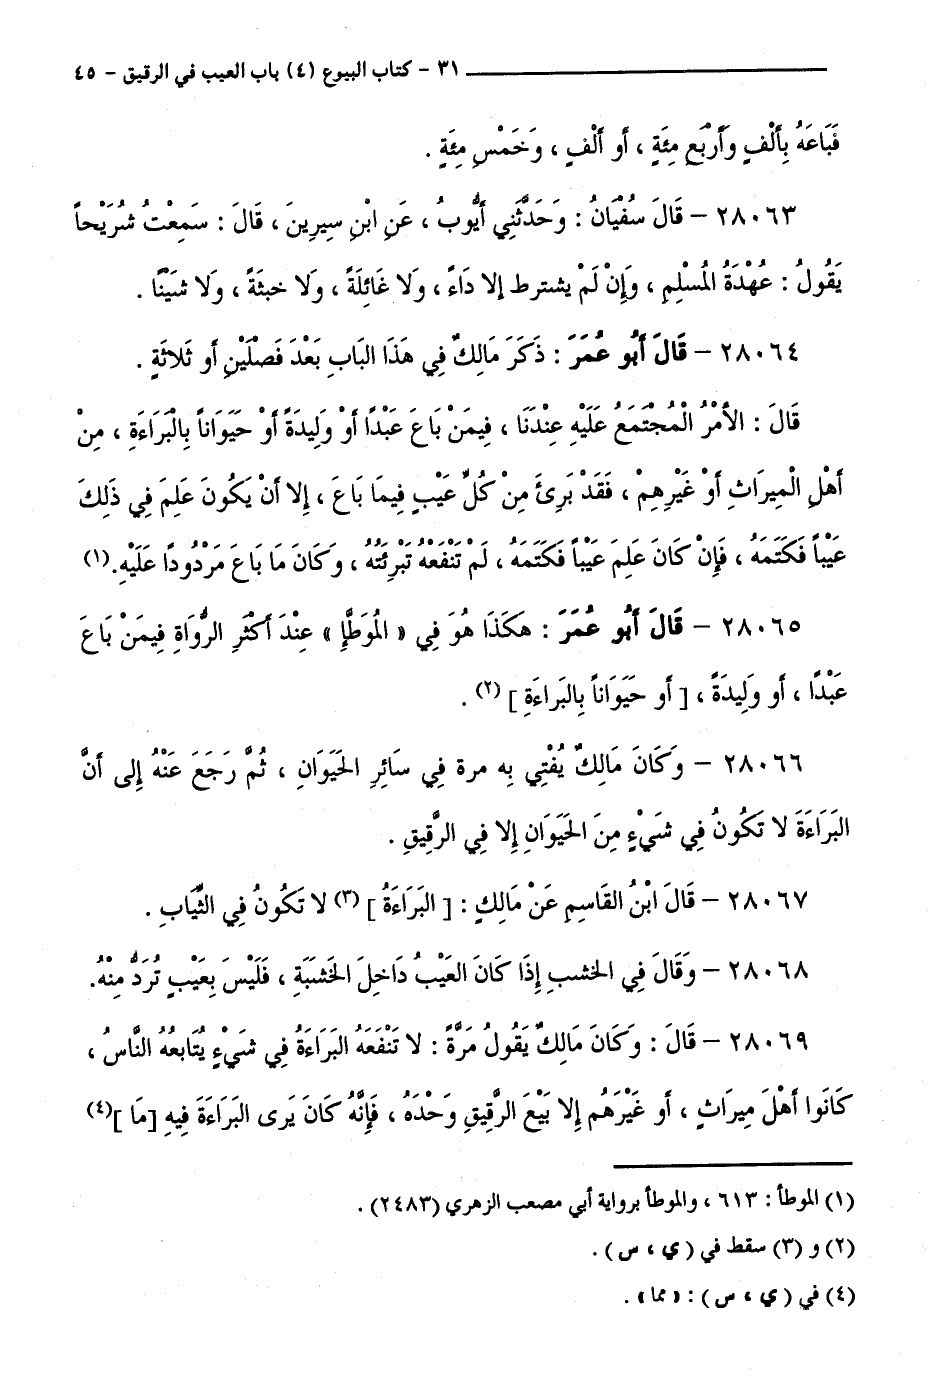 ٣١ - كتاب البيوع (٤) باب العيب في الرقيق - ٤٥
فَبَاعَهُ بِأَلْفٍ وَأَرْبَعِ مِئَةٍ ، أو أَلْفٍ ، وَخَمْسِ مِئَةٍ .
٢٨٠٦٣ - قَالَ سُفْيَانُ : وَحَدَّثَنِي أَيُّوبُ ، عَنِ ابْنِ سِيرِينَ ، قَالَ : سَمِعْتُ شُرَيْحاً
يَقُولُ : عُهْدَةُ المُسْلِمِ ، وَإِنْ لَمْ يشترط إلا دَاءً ، وَلا غَائِلَةً ، وَلا خبثَةً ، وَلا شَيْنًا .
٢٨٠٦٤ - قَالَ أَبُو عُمَرَ : ذَكَرَ مَالِكٌ فِي هَذَا البَابِ بَعْدَ فَصْلَيْنِ أو ثَلاثَةٍ .
قَالَ : الأمْرُ الْمُجْتَمَعُ عَلَيْهِ عِنْدَنَا ، فِيمَنْ بَاعَ عَبْدًا أَوْ وَلِيدَةً أَوْ حَيَوَاناً بِالْبَرَاءَةِ ، مِنْ
أَهْلِ الْمِيرَاثِ أَوْ غَيْرِهِمْ ، فَقَدْ بَرِئَ مِنْ كُلِّ عَيْبٍ فِيمَا بَاعَ ، إِلا أَنْ يَكُونَ عَلِمَ فِي ذَلِكَ
عَيْباً فَكَتَمَهُ ، فَإِنْ كَانَ عَلِمَ عَيْباً فَكَتَمَهُ ، لَمْ تَنْفَعْهُ تَبْرِئَتُهُ ، وَكَانَ مَا بَاعَ مَرْدُودًا عَلَيْهِ.(١)
٢٨٠٦٥ - قَالَ أَبُو عُمَرَ : هكَذَا هُوَ فِي « المُوَطَّإِ » عِنْدَ أَكْثَرِ الرُّوَاةِ فِيمَنْ بَاعَ
عَبْدًا ، أو وَلِيدَةً ، [ أو حَيَوَاناً بِالبَراءَةِ ] (٢) .
٢٨٠٦٦ - وَكَانَ مَالِكٌ يُفْتِي بِه مرة فِي سَائِرِ الحَيَوَانِ ، ثُمَّ رَجَعَ عَنْهُ إِلى أنَّ
البَرَاءَةَ لا تَكُونُ فِي شَيْءٍ مِنَ الحَيَوَانِ إلا فِي الرَّقِيقِ .
٢٨٠٦٧ - قَالَ ابْنُ القَاسِمِ عَنْ مَالِكٍ : [ البَرَاءَةُ ] (٣) لا تَكُونُ فِي الثِّيَابِ .
٢٨٠٦٨ - وَقَالَ فِي الخشبِ إِذَا كَانَ العَيْبُ دَاخِلَ الخَشبَةِ ، فَلَيْسَ بِعَيْبٍ تُرَدُّ مِنْهُ.
٢٨٠٦٩ - قَالَ : وَكَانَ مَالِكٌ يَقُولُ مَرَّةً : لا تَنْفَعُهُ البَرَاءَةُ فِي شَيْءٍ يُتَابعُهُ النَّاسُ ،
كَانُوا أَهْلَ مِيرَاثٍ ، أو غَيْرَهُم إلا بَيْعَ الرَّقِيقِ وَحْدَهُ ، فَإِنَّهُ كَانَ يَرى البَرَاءَةَ فِيهِ [مَا ](٤)
(١) الموطأ : ٦١٣ ، والموطأ برواية أبي مصعب الزهري (٢٤٨٣) .
(٢) و (٣) سقط في ( ي ، س ) .
(٤) في ( ي ، س ) : « مما » .